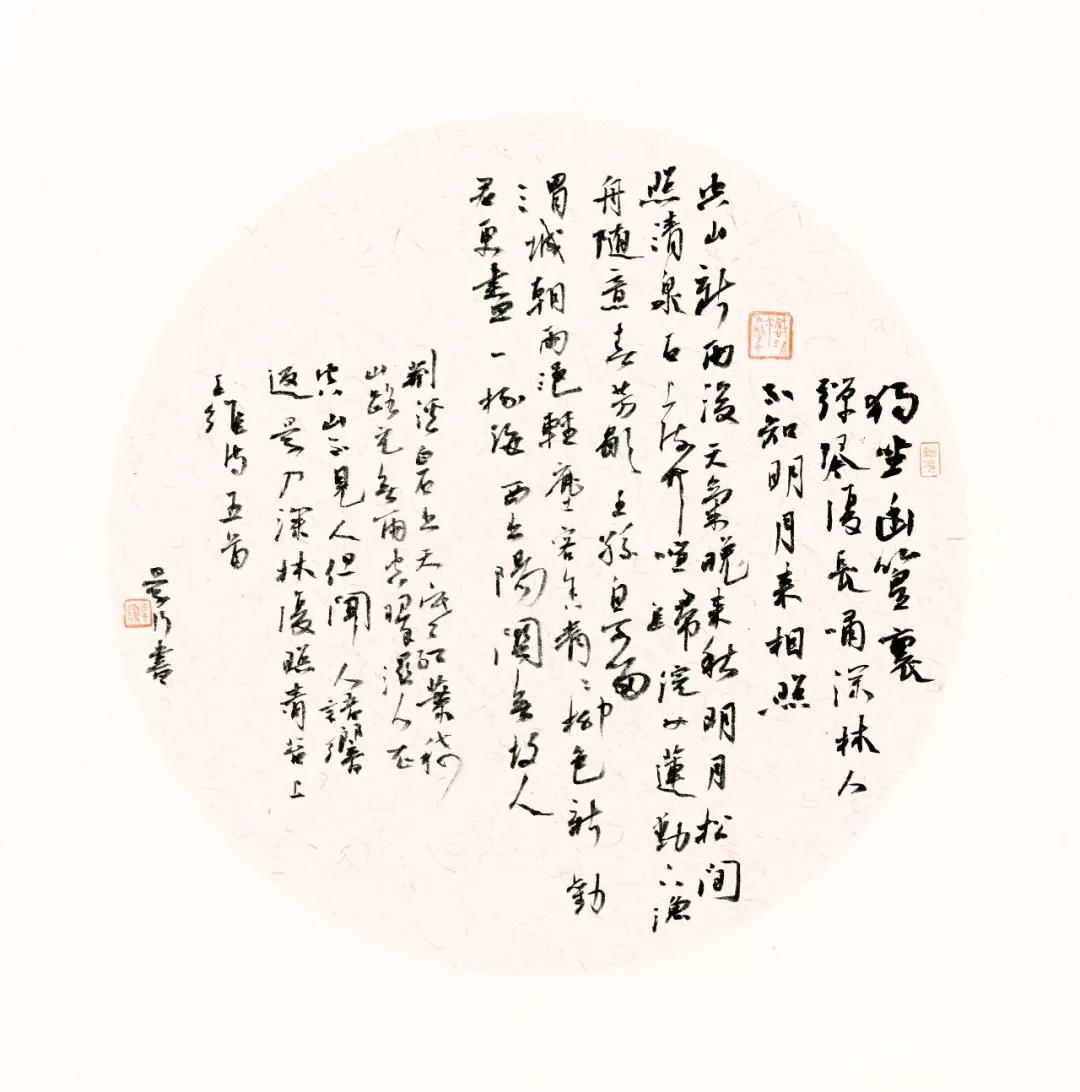 獨坐幽篁裏
彈琴復長嘯深林人
不知明月来相照
空山新雨後天氣晚来秋明月松間
照清泉石上流竹喧歸浣女蓮動下漁
舟随意春芳歇王孫自可留
渭城朝雨浥輕塵客舍青〻柳色新勸
君更盡一杯酒西出陽關無故人
荆溪白石出天寒紅葉稀
山路元無雨空翠濕人衣
空山不見人但聞人語響
返景入深林復照青苔上
王維詩五首
景行書